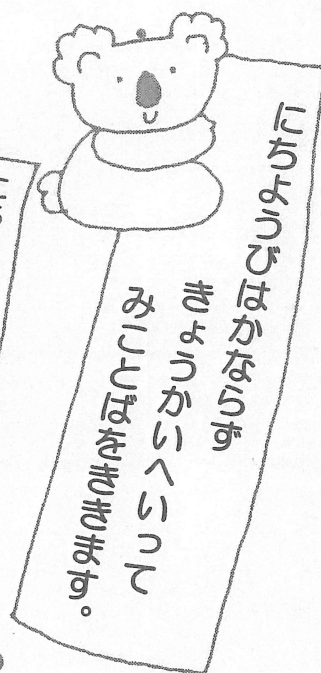 にちようびはかならず
きょうかいへいって
みことばをききます。